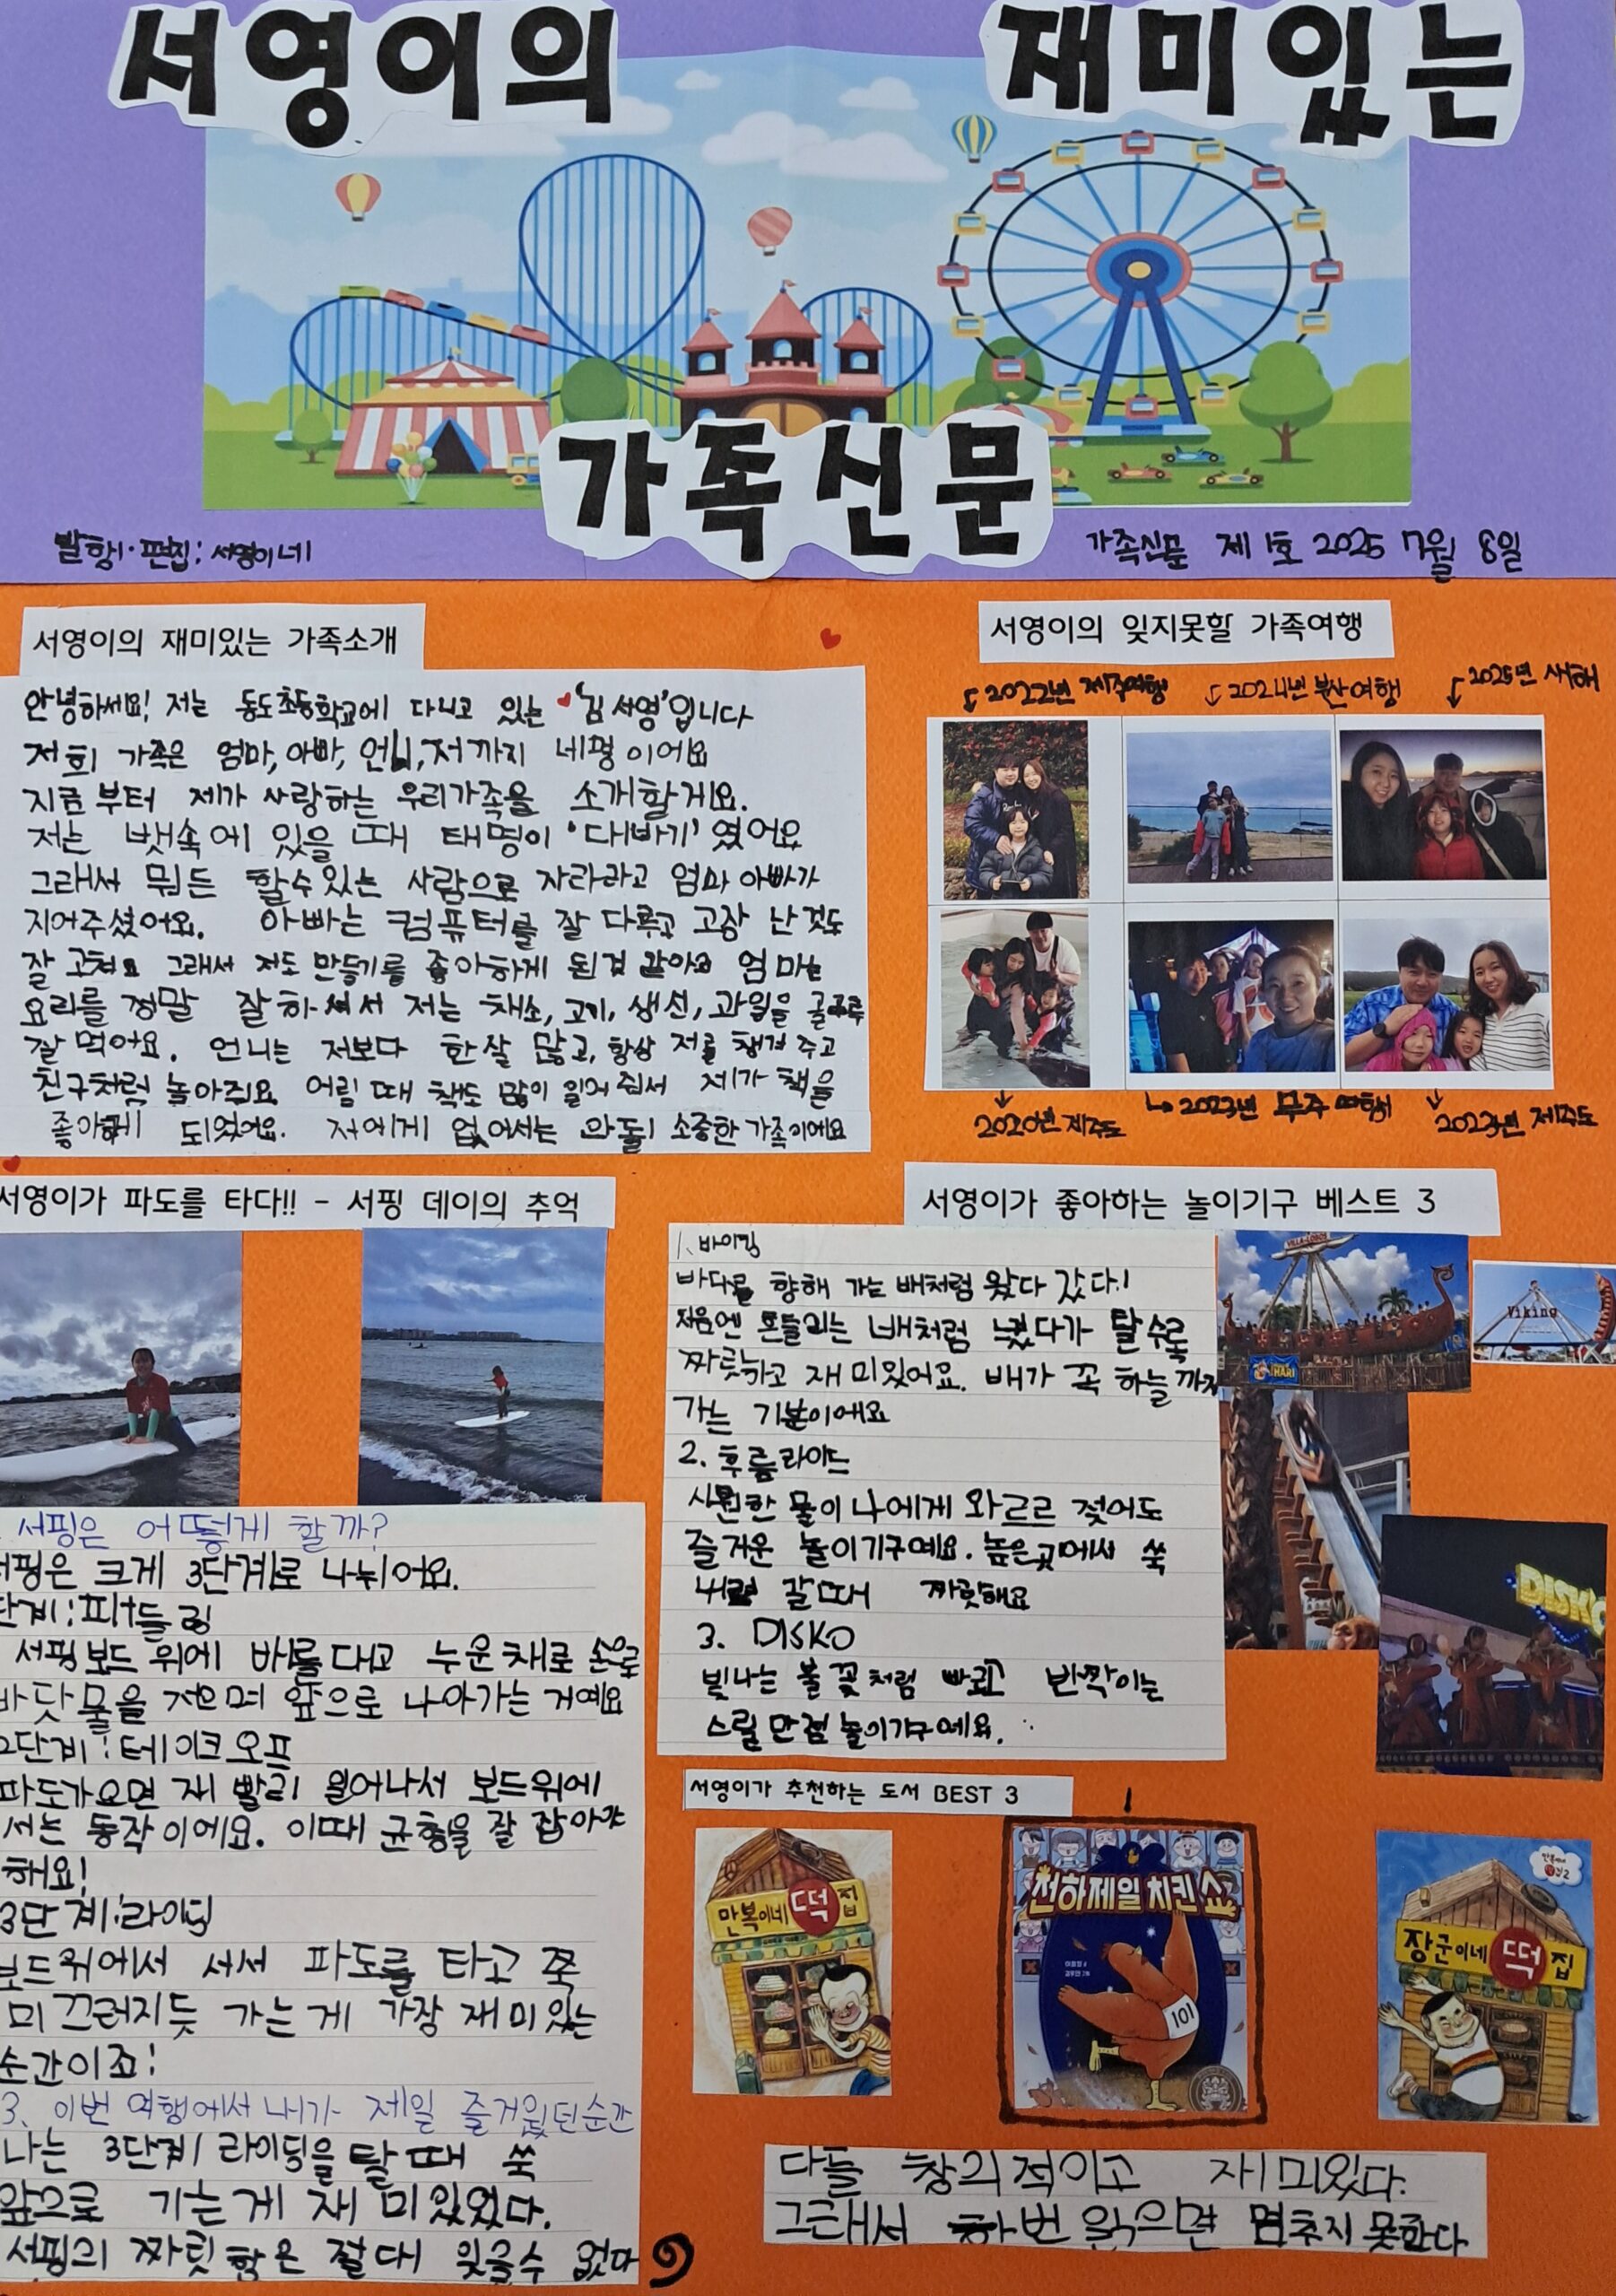 서영이의 재미있는
가족신문
발행·편집: 서영이네
가족신문 제 1호 2025 7월 8일
서영이의 재미있는 가족소개
안녕하세요! 저는 동도초등학교에 다니고 있는 '김서영'입니다
저희 가족은 엄마, 아빠, 언니, 저까지 네명이에요
지금부터 제가 사랑하는 우리가족을 소개할게요.
저는 뱃속에 있을 때 태명이 '대바기'였어요
그래서 뭐든 할수있는 사람으로 자라라고 엄마 아빠가
지어주셨어요. 아빠는 컴퓨터를 잘 다루고 고장 난 것도
잘 고쳐요 그래서 저도 만들기를 좋아하게 된것 같아요 엄마는
요리를 정말 잘하셔서 저는 채소, 고기, 생선, 과일을 골고루
잘 먹어요. 언니는 저보다 한살 많고, 항상 저를 챙겨 주고
친구처럼 놀아줘요 어릴 때 책도 많이 읽어 줘서 제가 책을
좋아하게 되었어요. 저에게 없어서는 안될 소중한 가족이에요
서영이의 잊지못할 가족여행
2022년 제주여행
2024년 부산여행
2025년 새해
2020년 제주도
2023년 무주 여행
2023년 제주도
서영이가 파도를 타다!! - 서핑 데이의 추억
서핑은 어떻게 할까?
서핑은 크게 3단계로 나뉘어요.
단계: 패들링
서핑보드 위에 배를 대고 누운채로 손으로
바닷물을 저으며 앞으로 나아가는 거예요
2단계: 테이크오프
파도가오면 재빨리 일어나서 보드위에
서는 동작이에요. 이때 균형을 잘 잡아야
해요!
3단계: 라이딩
보드위에서 서서 파도를 타고 쭉
미끄러지듯 가는게 가장 재미있는
순간이죠!
3. 이번 여행에서 내가 제일 즐거웠던순간
나는 3단계 라이딩을 탈때 쑥
앞으로 가는게 재미있었다.
서핑의 짜릿함은 절대 잊을수 없다
서영이가 좋아하는 놀이기구 베스트 3
1. 바이킹
바다를 향해 가는 배처럼 왔다 갔다!
처음엔 흔들리는 배처럼 느꼈다가 탈수록
짜릿하고 재미있어요. 배가 꼭 하늘까지
가는 기분이에요
2. 후룸라이드
시원한 물이 나에게 와르르 젖어도
즐거운 놀이기구예요. 높은곳에서 쑥
내려 갈때 짜릿해요
3. DISKO
빛나는 불꽃처럼 빠르고 반짝이는
스릴만점 놀이기구예요.
VILLA-LOBOS
HARI
Viking
DISKO
서영이가 추천하는 도서 BEST 3
1
만복이네 떡집
천하제일 치킨쇼
101
만복이네 떡집 2
장군이네 떡집
다들 창의적이고 재미있다.
그래서 한번 읽으면 멈추지 못한다